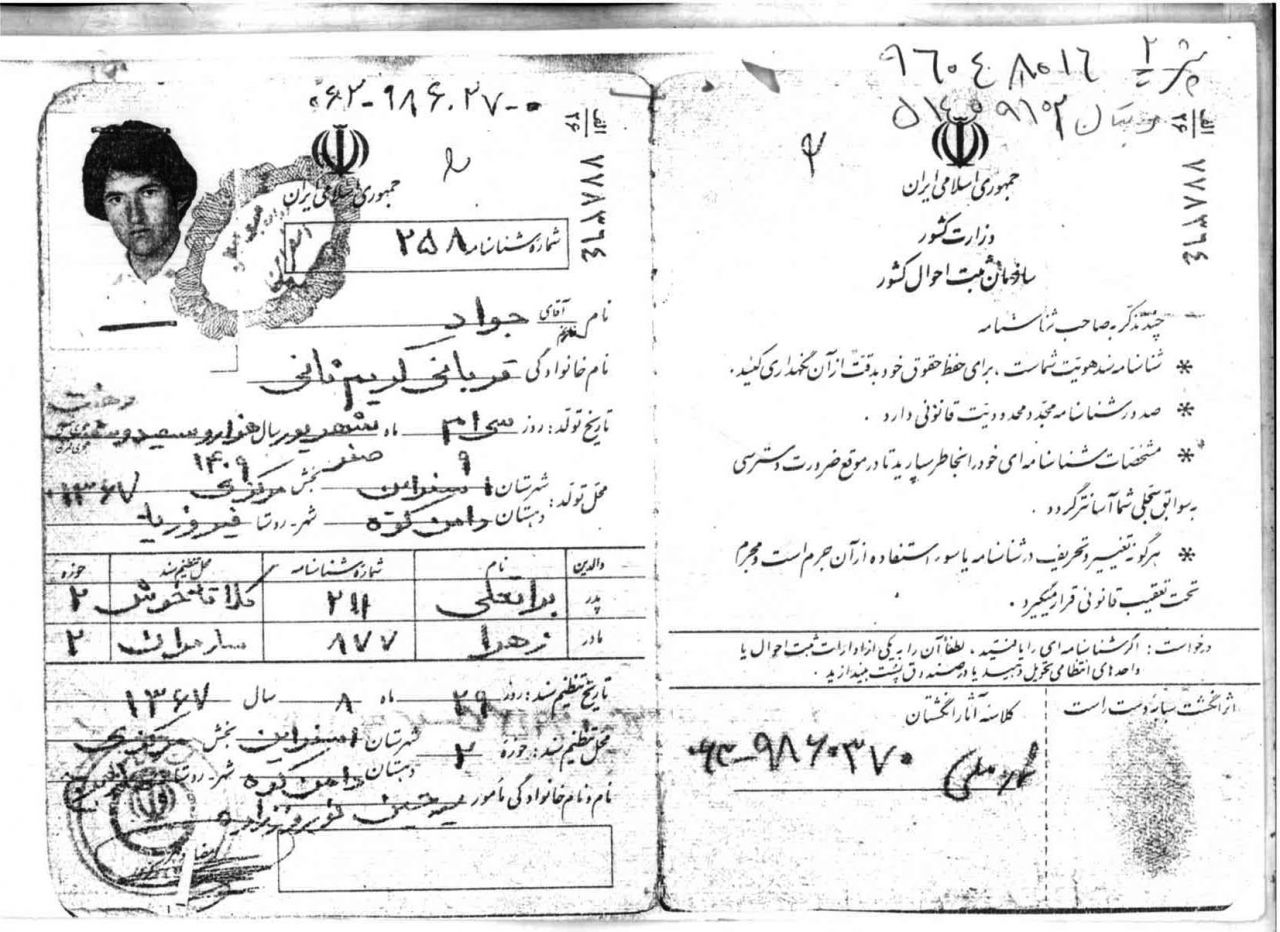 ۹۶۰۴۸۰۱۶
الف
۲۶
۷۷۸۳۶۴
جمهوری اسلامی ایران
وزارت کشور
سازمان ثبت احوال کشور
چند تذکر به صاحب شناسنامه
* شناسنامه سند هویت شماست ، برای حفظ حقوق خود بدقت از آن نگهداری کنید .
* صدور شناسنامه مجدد محدودیت قانونی دارد .
* مشخصات شناسنامه ای خود را بخاطر بسپارید تا در موقع ضرورت دسترسی
به سوابق سجلی شما آسانتر گردد .
* هرگونه تغییر و تحریف در شناسنامه یا سوء استفاده از آن جرم است و مجرم
تحت تعقیب قانونی قرار میگیرد .
درخواست : اگر شناسنامه ای را یافتید ، لطفاً آن را به یکی از ادارات ثبت احوال یا
واحدهای انتظامی تحویل دهید یا در صندوق پست بیندازید .
اثر انگشت سبابه دست راست
کلاسه آثار انگشتان
الف
۲۶
۷۷۸۳۶۴
جمهوری اسلامی ایران
شماره شناسنامه ۲۵۸
نام آقای جواد
نام خانوادگی قربانی کریم خانی
تاریخ تولد : روز سی ام ماه شهریور سال هزار و سیصد و شصت
۹ صفر ۱۴۰۹
محل تولد : شهرستان اسفراین بخش مرکزی ۱۳۶۷
دهستان دامن کوه شهر - روستا
والدین نام شماره شناسنامه محل تنظیم سند حوزه
پدر براتعلی ۲۱۱ ۲
مادر زهرا ۸۷۷ ۲
تاریخ تنظیم سند : روز ۲۹ ماه ۸ سال ۱۳۶۷
محل تنظیم سند : حوزه ۲ شهرستان اسفراین بخش مرکزی
دهستان دامن کوه شهر - روستا
نام و نام خانوادگی مأمور